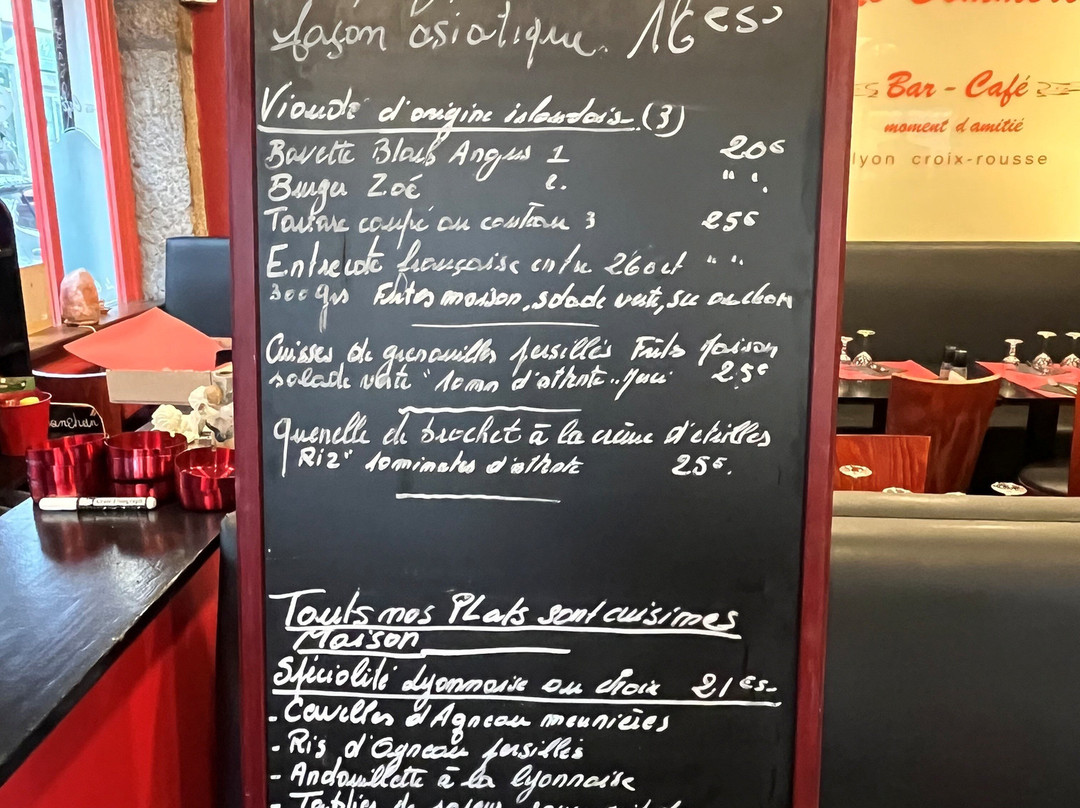 façon asiatique. 16 €s
Viande d'origine islandais. (3)
Bavette Black Angus 1 20€
Burger Zoé 2. " ".
Tartare coupé au couteau 3 25€
Entrecote française entre 260 et " ".
300grs Frites maison, salade verte, sce au choix
Cuisses de grenouilles persillés Frites Maison
salade verte "10 mn d'attente". Merci 25€
Quenelle de brochet à la crème d'etrilles
Riz" 10 minutes d'attente 25€.
Touts nos Plats sont cuisinés
Maison
Spécialité Lyonnaise au choix 21 €s-
- Cervelles d'Agneau meunières
- Ris d'Agneau persillés
- Andouillette à la lyonnaise
- Tablier de sapeur
Bar - Café
moment d'amitié
lyon croix-rousse